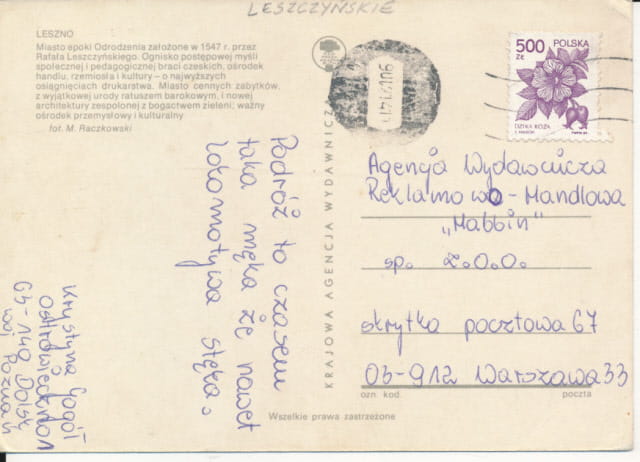 LESZCZYŃSKIE
LESZNO
Miasto epoki Odrodzenia założone w 1547 r. przez
Rafała Leszczyńskiego. Ognisko postępowej myśli
społecznej i pedagogicznej braci czeskich, ośrodek
handlu, rzemiosła i kultury – o najwyższych
osiągnięciach drukarstwa. Miasto cennych zabytków,
z wyjątkowej urody ratuszem barokowym, i nowej
architektury zespolonej z bogactwem zieleni; ważny
ośrodek przemysłowy i kulturalny
fot. M. Raczkowski
500
ZŁ
POLSKA
DZIKA RÓŻA
KRAJOWA AGENCJA WYDAWNICZA
Podróż to czasem
taka męka że nawet
lokomotywa stęka.
Krystyna
63-140 Dolsk
woj Poznań
Agencja Wydawnicza
Reklamowo-Handlowa
„Mabbin"
sp. z.o.o.
skrytka pocztowa 67
03-912 Warszawa 33
ozn kod.
poczta
Wszelkie prawa zastrzeżone